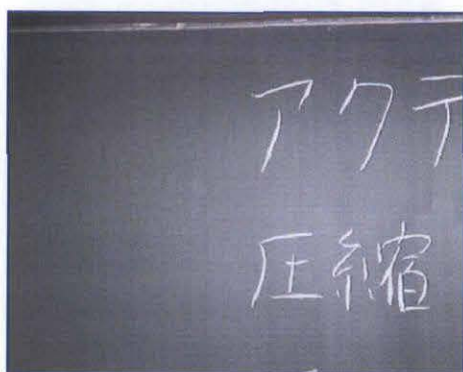 アクテ
圧縮